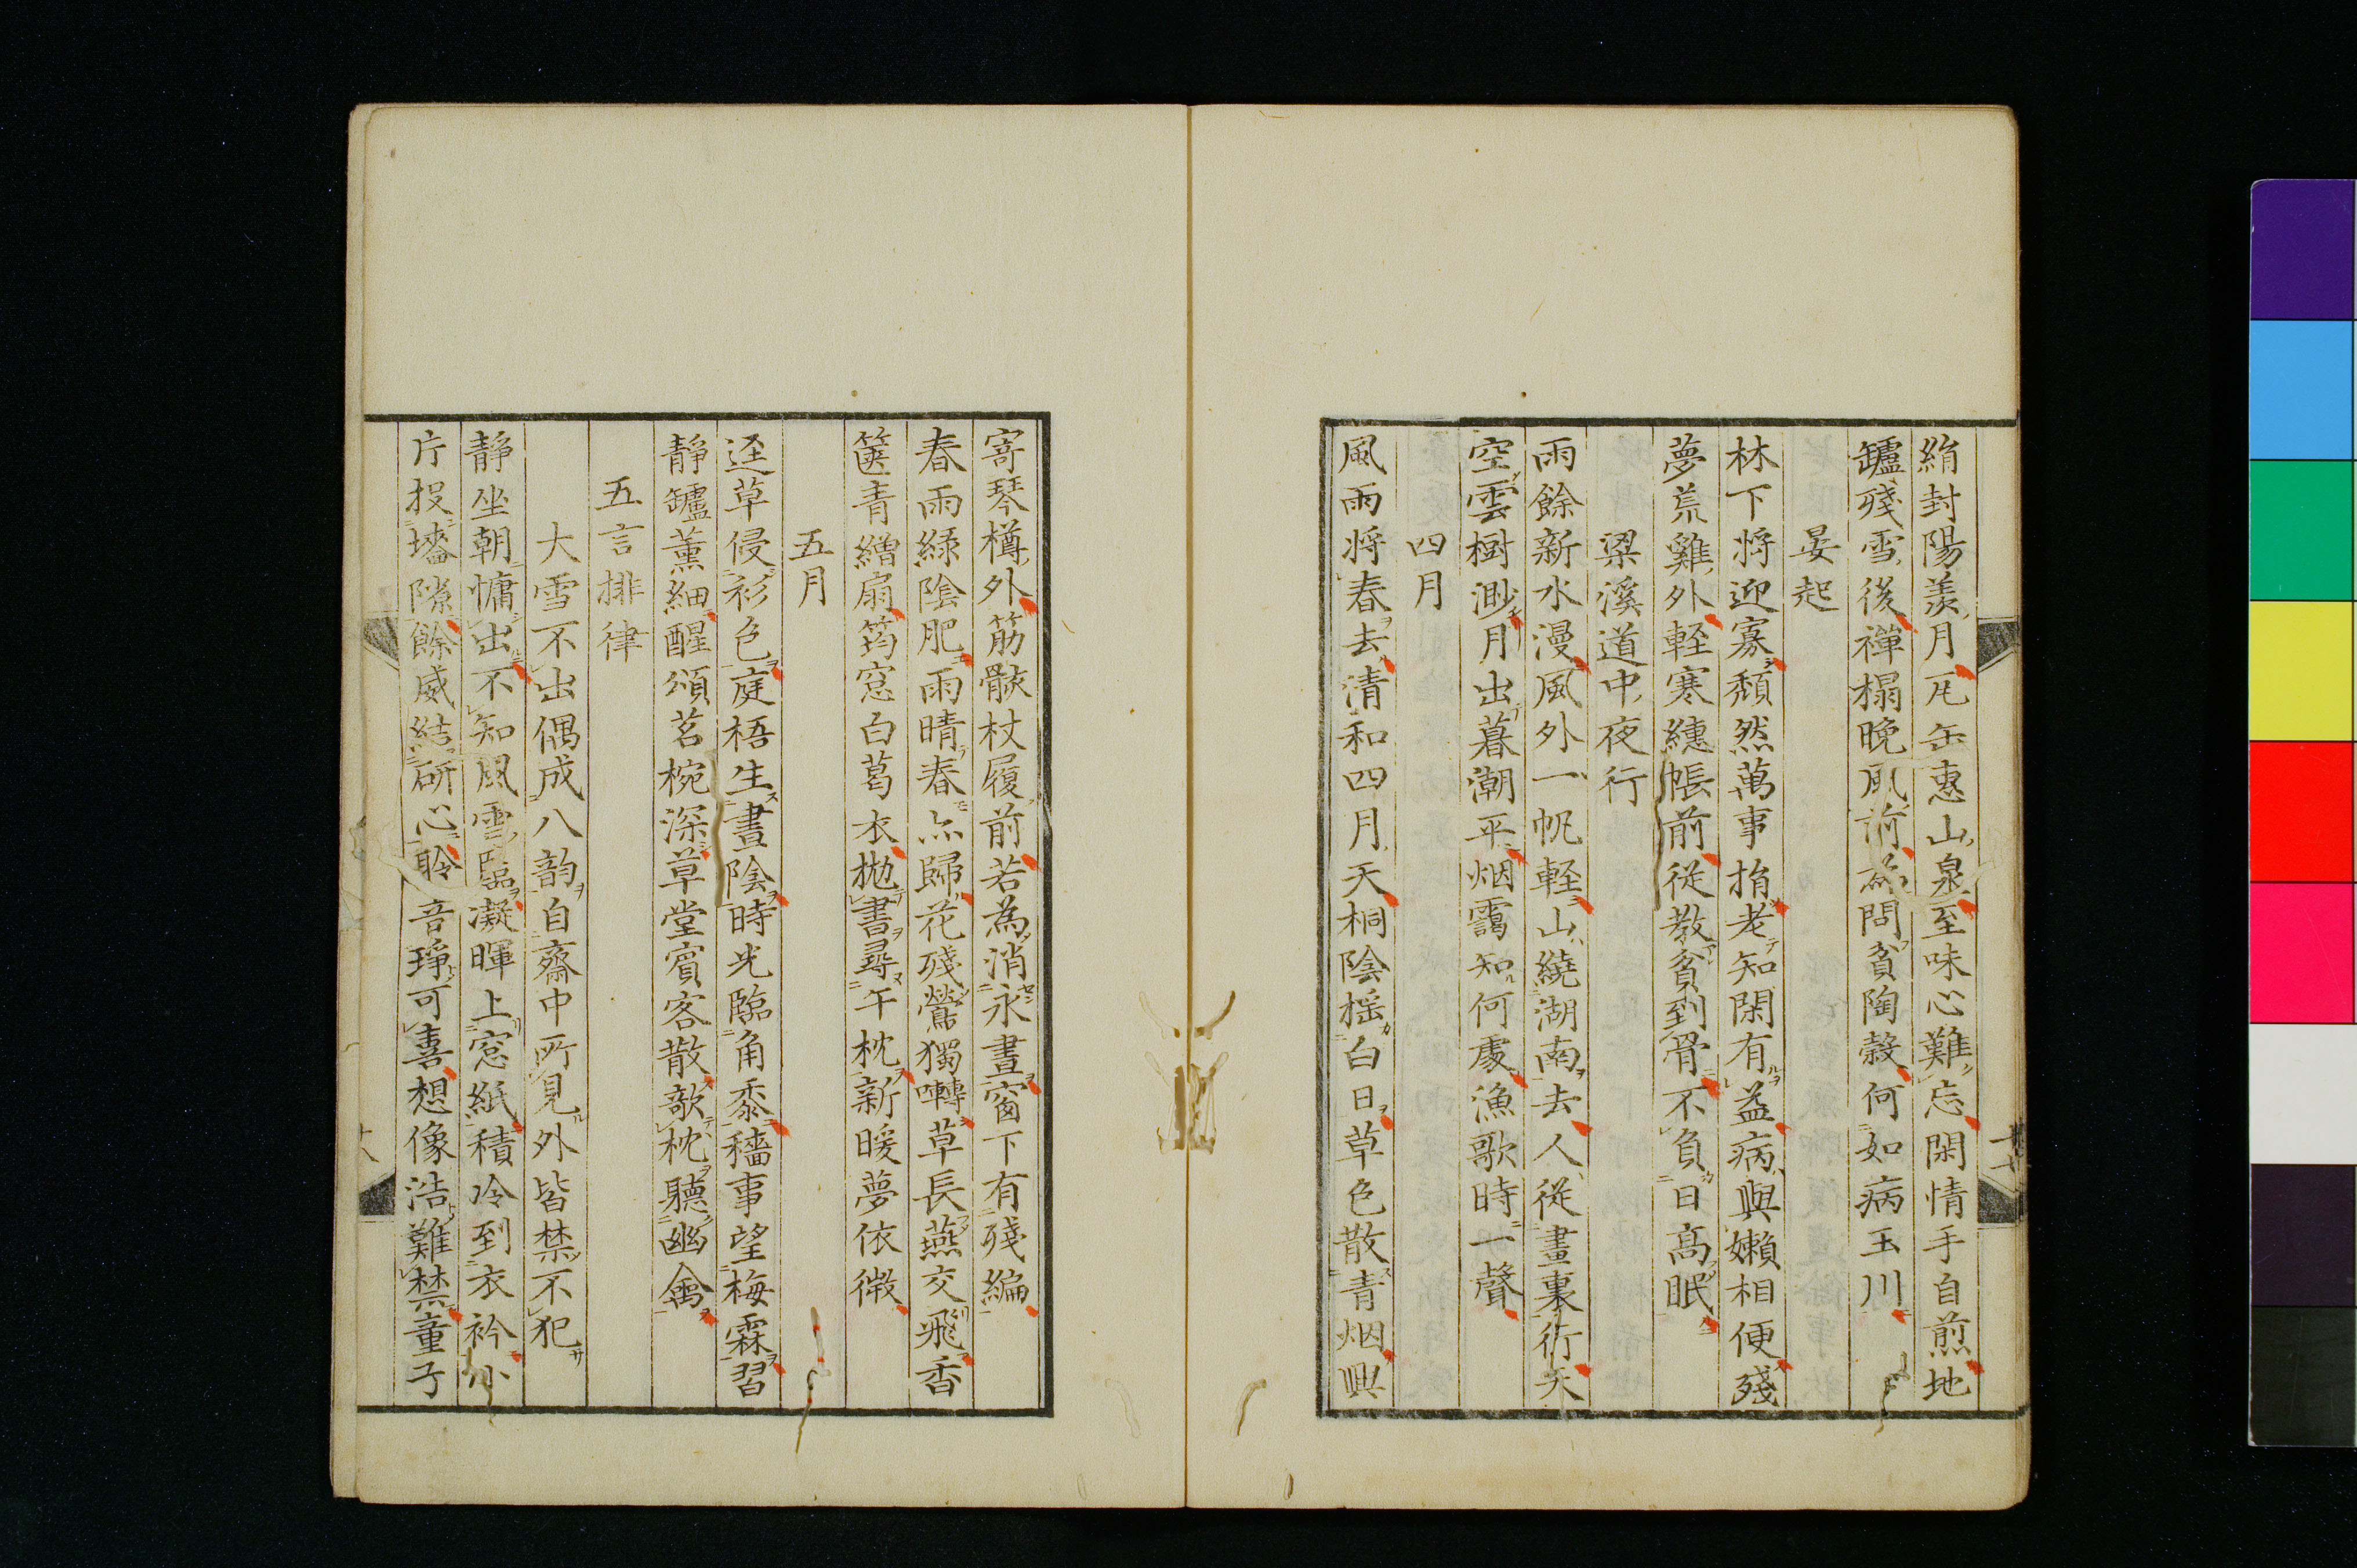 絹封陽羨月瓦缶惠山泉至味心難忘閑情手自煎地
罏殘雪後禪榻晚風前為問貧陶穀何如病玉川
晏起
林下將迎寡頹然萬事捐老知閑有益病與嬾相便殘
夢荒雞外輕寒繐帳前從教貧到骨不負日高眠
梁溪道中夜行
雨餘新水漫風外一帆輕山繞湖南去人從畫裏行天
空雲樹渺月出暮潮平烟靄知何處漁歌時一聲
四月
風雨將春去清和四月天桐陰搖白日草色散青烟興
寄琴樽外筋骸杖履前若為消永晝窗下有殘編
春雨綠陰肥雨晴春亦歸花殘鶯獨囀草長燕交飛香
篋青繒扇筠窓白葛衣拋書尋午枕新暖夢依微
五月
逕草侵衫色庭梧生晝陰時光臨角黍穡事望梅霖習
靜罏薰細醒煩茗椀深草堂賓客散欹枕聽幽禽
五言排律
大雪不出偶成八韵自齋中所見外皆禁不犯
靜坐朝慵出不知風雪臨凝暉上窓紙積冷到衣衿小
片投墻隙餘威結研心聆音琤可喜想像浩難禁童子